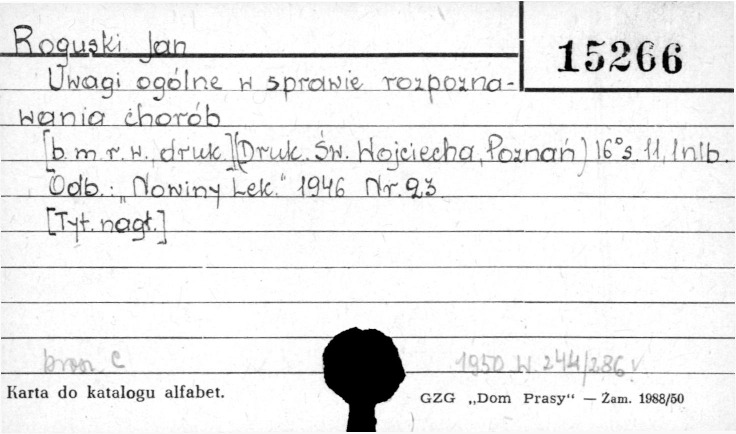 Roguski Jan
15266
Uwagi ogólne w sprawie rozpozna-
wania chorób
[b.m.r.w., druk.](Druk. Św. Wojciecha, Poznań) 16° s. 11, 1 nlb.
Odb.: „Nowiny Lek." 1946 Nr. 23
[Tyt. nagł.]
brosz. C
1950 W. 244/286
Karta do katalogu alfabet.
GZG „Dom Prasy“ — Zam. 1988/50